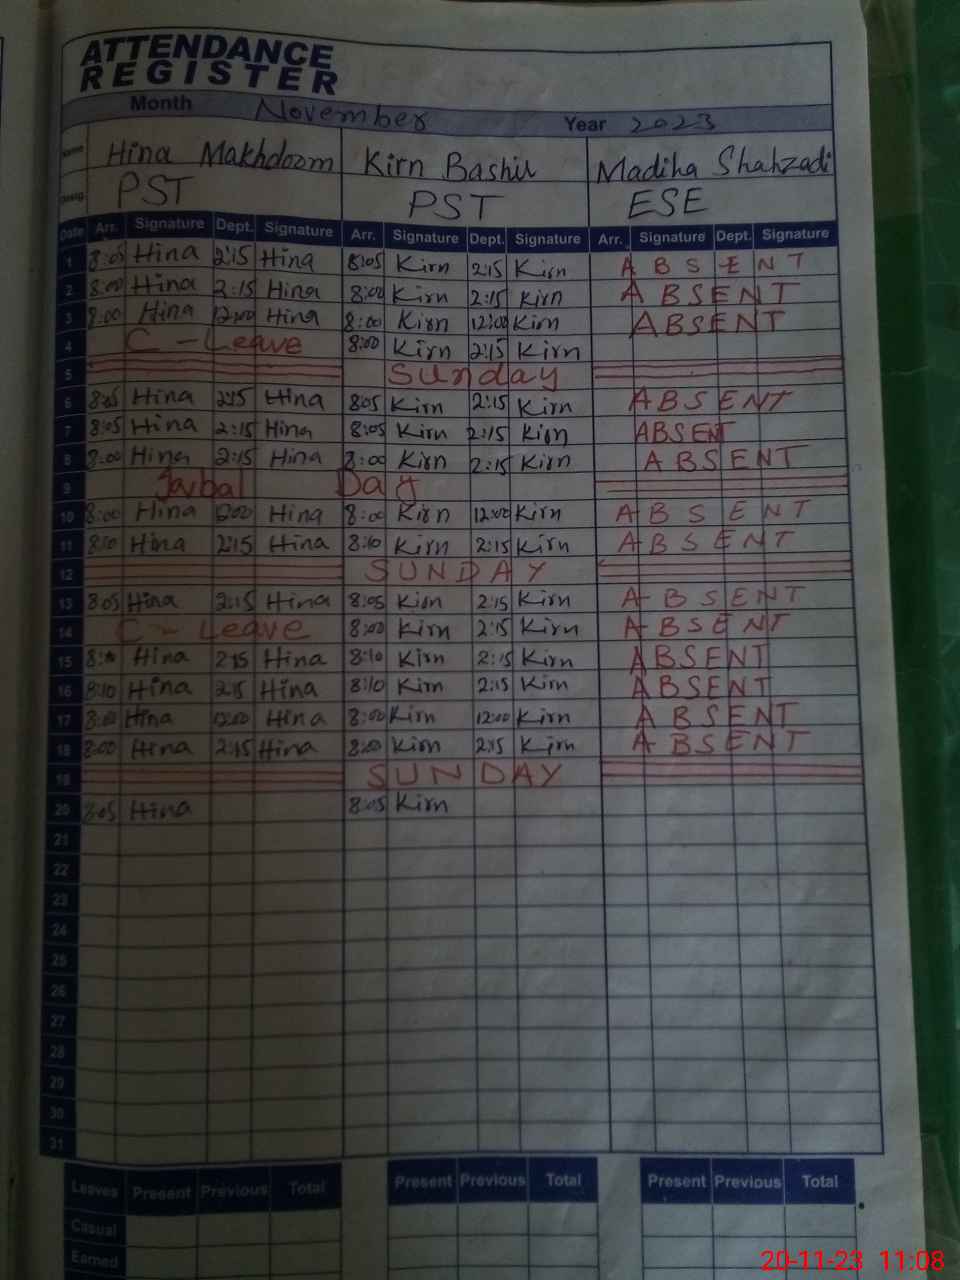 ATTENDANCE
REGISTER
Month November Year 2023
Name Hina Makhdoom Kirn Bashir Madiha Shahzadi
Desig. PST PST ESE
Date Arr. Signature Dept. Signature Arr. Signature Dept. Signature Arr. Signature Dept. Signature
1 8:05 Hina 2:15 Hina 8:05 Kirn 2:15 Kirn ABSENT
2 8:00 Hina 2:15 Hina 8:00 Kirn 2:15 Kirn ABSENT
3 8:00 Hina 12:00 Hina 8:00 Kirn 12:00 Kirn ABSENT
4 C - Leave 8:00 Kirn 2:15 Kirn
5 Sunday
6 8:05 Hina 2:15 Hina 8:05 Kirn 2:15 Kirn ABSENT
7 8:05 Hina 2:15 Hina 8:05 Kirn 2:15 Kirn ABSENT
8 8:00 Hina 2:15 Hina 8:00 Kirn 2:15 Kirn ABSENT
9 Day
10 8:00 Hina 12:00 Hina 8:00 Kirn 12:00 Kirn ABSENT
11 8:10 Hina 2:15 Hina 8:10 Kirn 2:15 Kirn ABSENT
12 SUNDAY
13 8:05 Hina 2:15 Hina 8:05 Kirn 2:15 Kirn ABSENT
14 C - Leave 8:00 Kirn 2:15 Kirn ABSENT
15 8:10 Hina 2:15 Hina 8:10 Kirn 2:15 Kirn ABSENT
16 8:10 Hina 2:15 Hina 8:10 Kirn 2:15 Kirn ABSENT
17 8:00 Hina 12:00 Hina 8:00 Kirn 12:00 Kirn ABSENT
18 8:00 Hina 2:15 Hina 8:00 Kirn 2:15 Kirn ABSENT
19 SUNDAY
20 8:05 Hina 8:05 Kirn
21
22
23
24
25
26
27
28
29
30
31
Leaves Present Previous Total Present Previous Total Present Previous Total
Casual
Earned
20-11-23 11:08